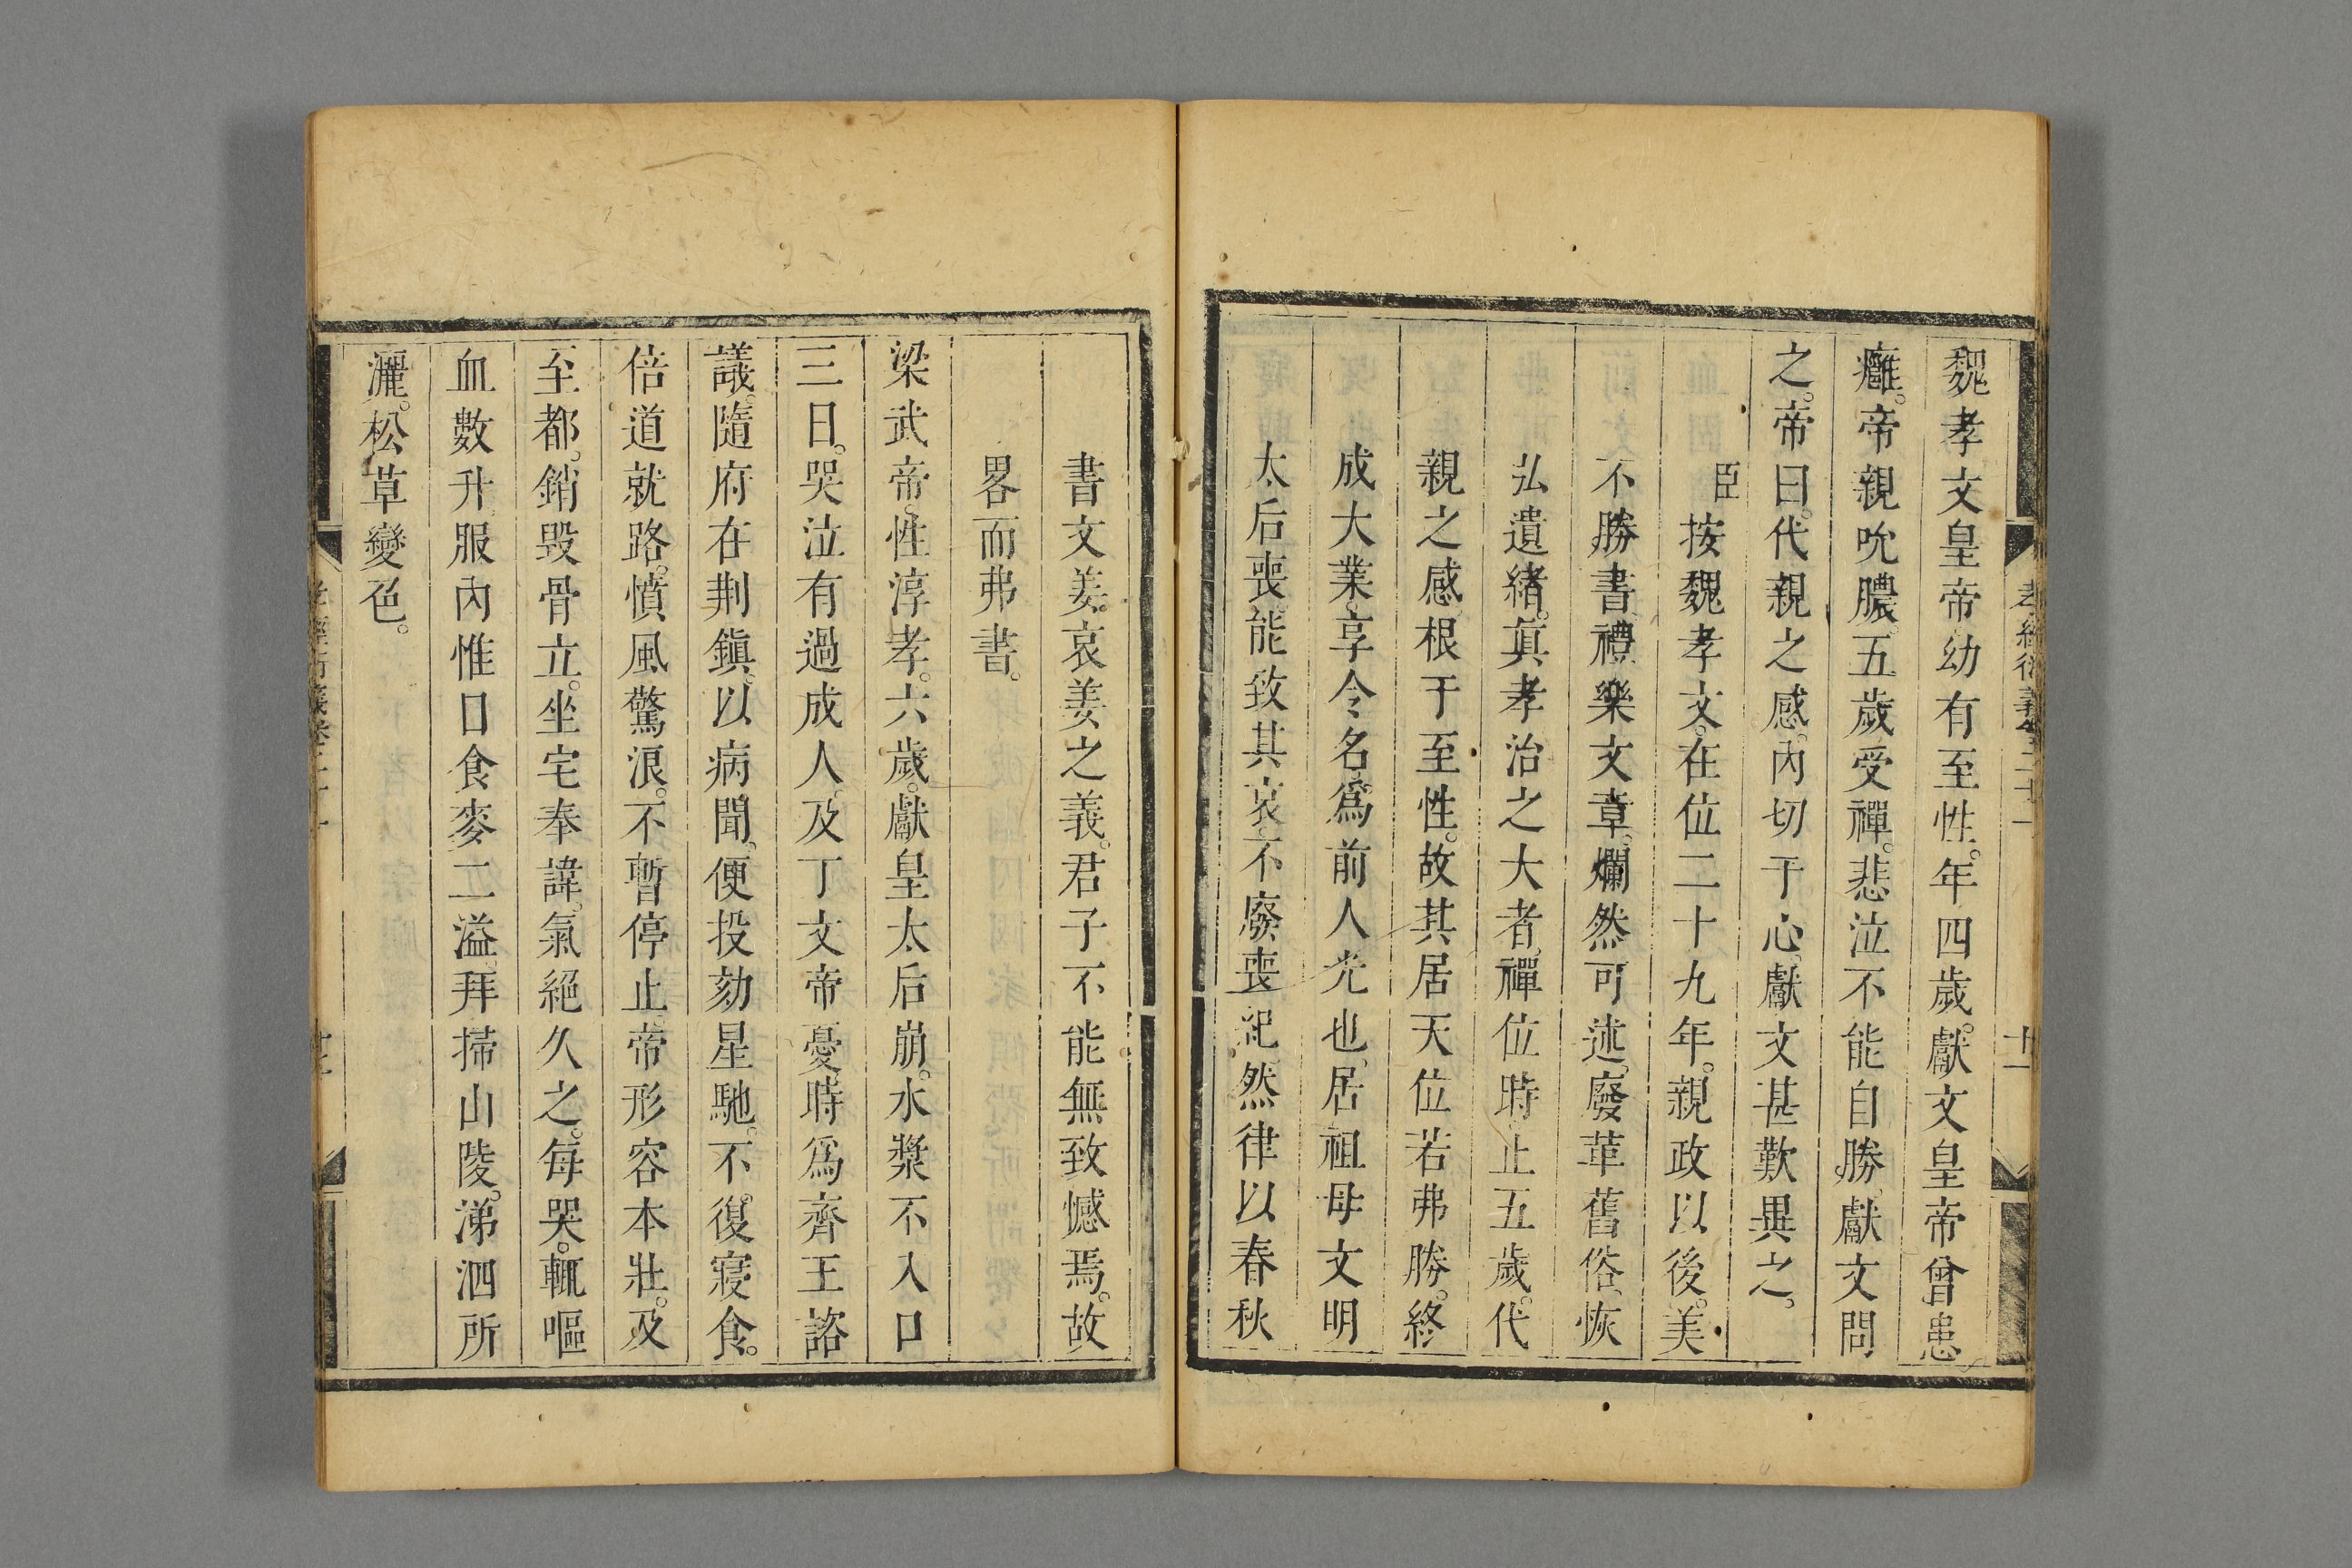 孝經衍義卷二十一
十一
魏孝文皇帝幼有至性。年四歲。獻文皇帝曾患
癰。帝親吮膿。五歲受禪。悲泣不能自勝。獻文問
之。帝曰。代親之感。內切于心。獻文甚歎異之。
臣按魏孝文。在位二十九年。親政以後。美
不勝書。禮樂文章。爛然可述。廢革舊俗。恢
弘遺緒。眞孝治之大者。禪位時。止五歲。代
親之感。根于至性。故其居天位若弗勝。終
成大業。享令名。爲前人光也。居祖母文明
太后喪。能致其哀。不廢喪紀。然律以春秋
書文姜。哀姜之義。君子不能無致憾焉。故
畧而弗書。
梁武帝。性淳孝。六歲。獻皇太后崩。水漿不入口
三日。哭泣有過成人。及丁文帝憂。時爲齊王諮
議。隨府在荆鎭。以病聞。便投劾星馳。不復寢食。
倍道就路。憤風驚浪。不暫停止。帝形容本壯。及
至都。銷毀骨立。坐宅奉諱。氣絕久之。每哭。輒嘔
血數升。服內惟口食麥二溢。拜掃山陵。涕泗所
灑。松草變色。